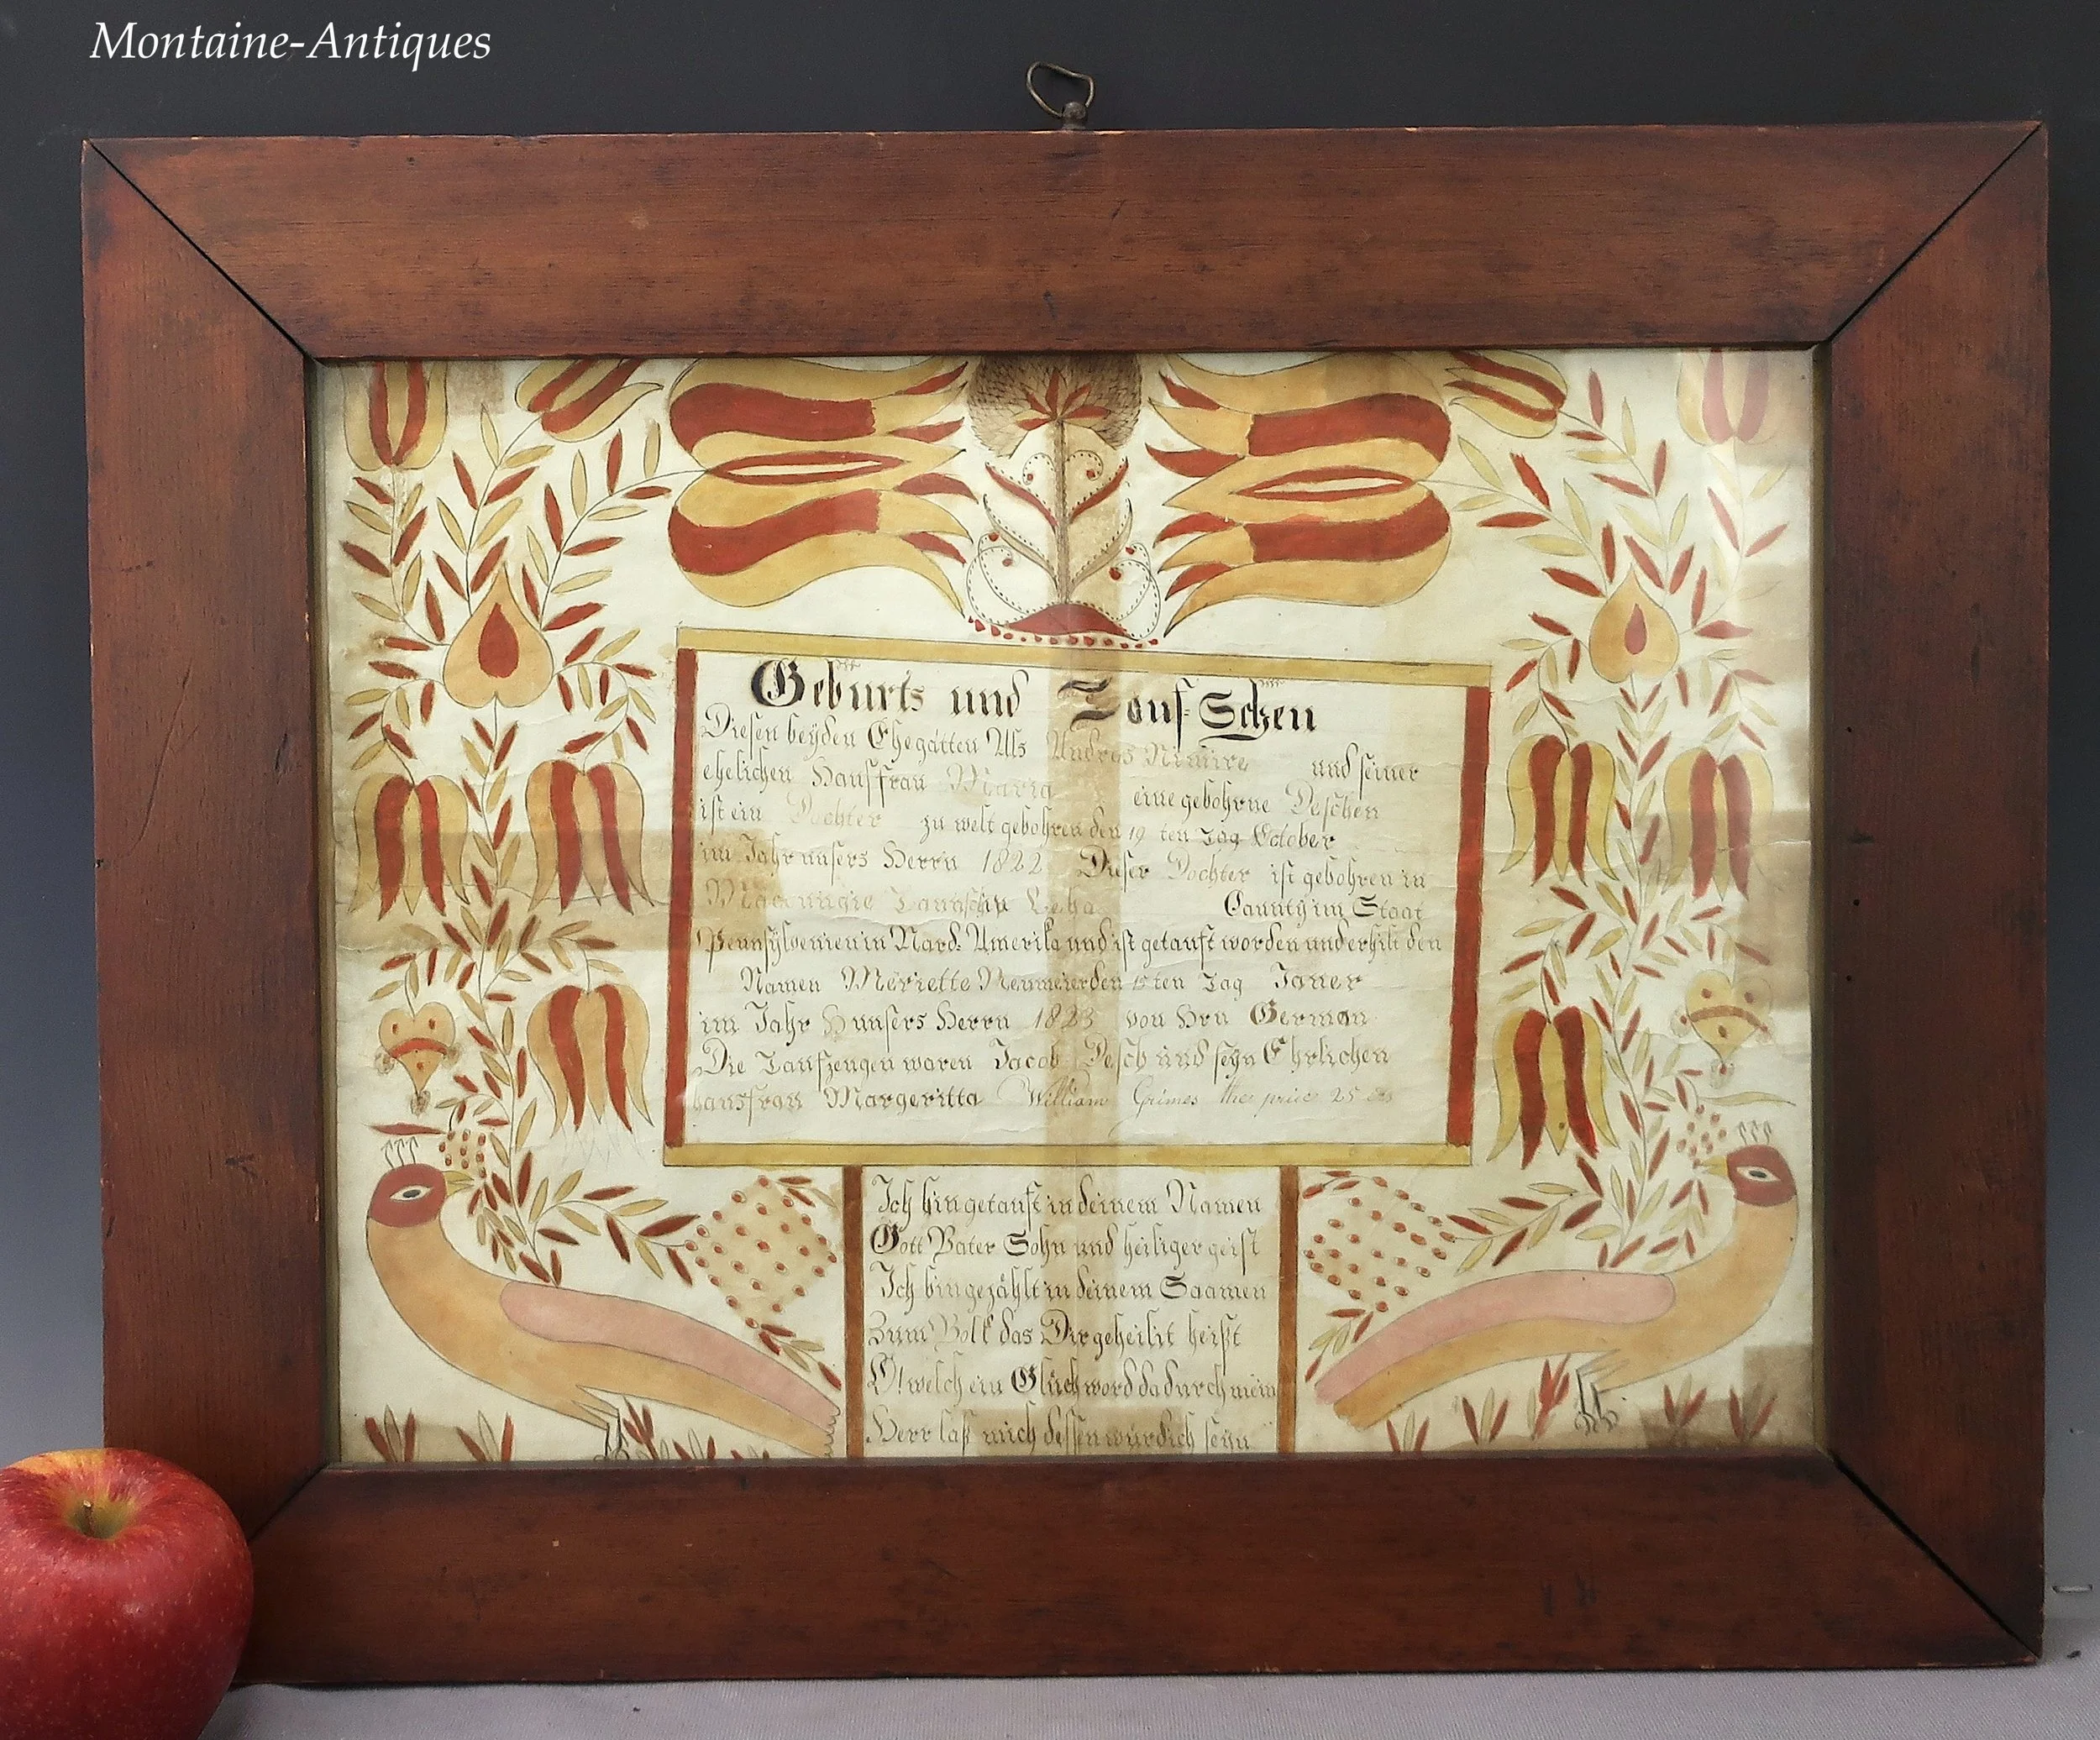 Montaine-Antiques
Geburts und Tauf-Schen
Diesen beyden Ehegatten Als Andres Nimire und seiner
ehelichen Hausffrau Maria eine gebohrne Deschen
ist ein Dochter zu welt gebohren den 19 ten Tag Ectober
im Jahr unsers Herrn 1822 Dieser Dochter ist gebohren in
Maccungie Taunschip Lecha Caunty im Staat
Pennsylvenien in Nard: Amerika und ist getauft worden und erhilt den
Namen Meriette Neumeier den 15ten Tag Jauer
im Jahr unsers Herrn 1823 von Hrn German
Die Taufzeugen waren Jacob Desch und seyn Ehrlichen
hausfrau Margeritta William Grimes the price 25
Ich bin getauft in deinem Namen
Gott Vater Sohn und heiliger geist
Ich bin gezählt in deinem Saamen
Zum Volk das Dir geheilit heißt
O! welch ein Glück word dadurch mein
Herr laß mich dessen würdich seyn